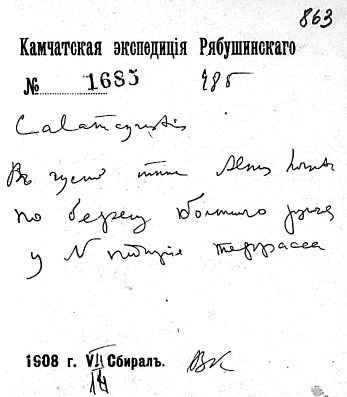 863
Камчатская экспедиція Рябушинскаго
№ 1685 486
Calamagrostis
Въ густой тѣни Alnus
по берегу большого ручья
у N террасса
1908 г. VII Сбиралъ. ВК
14